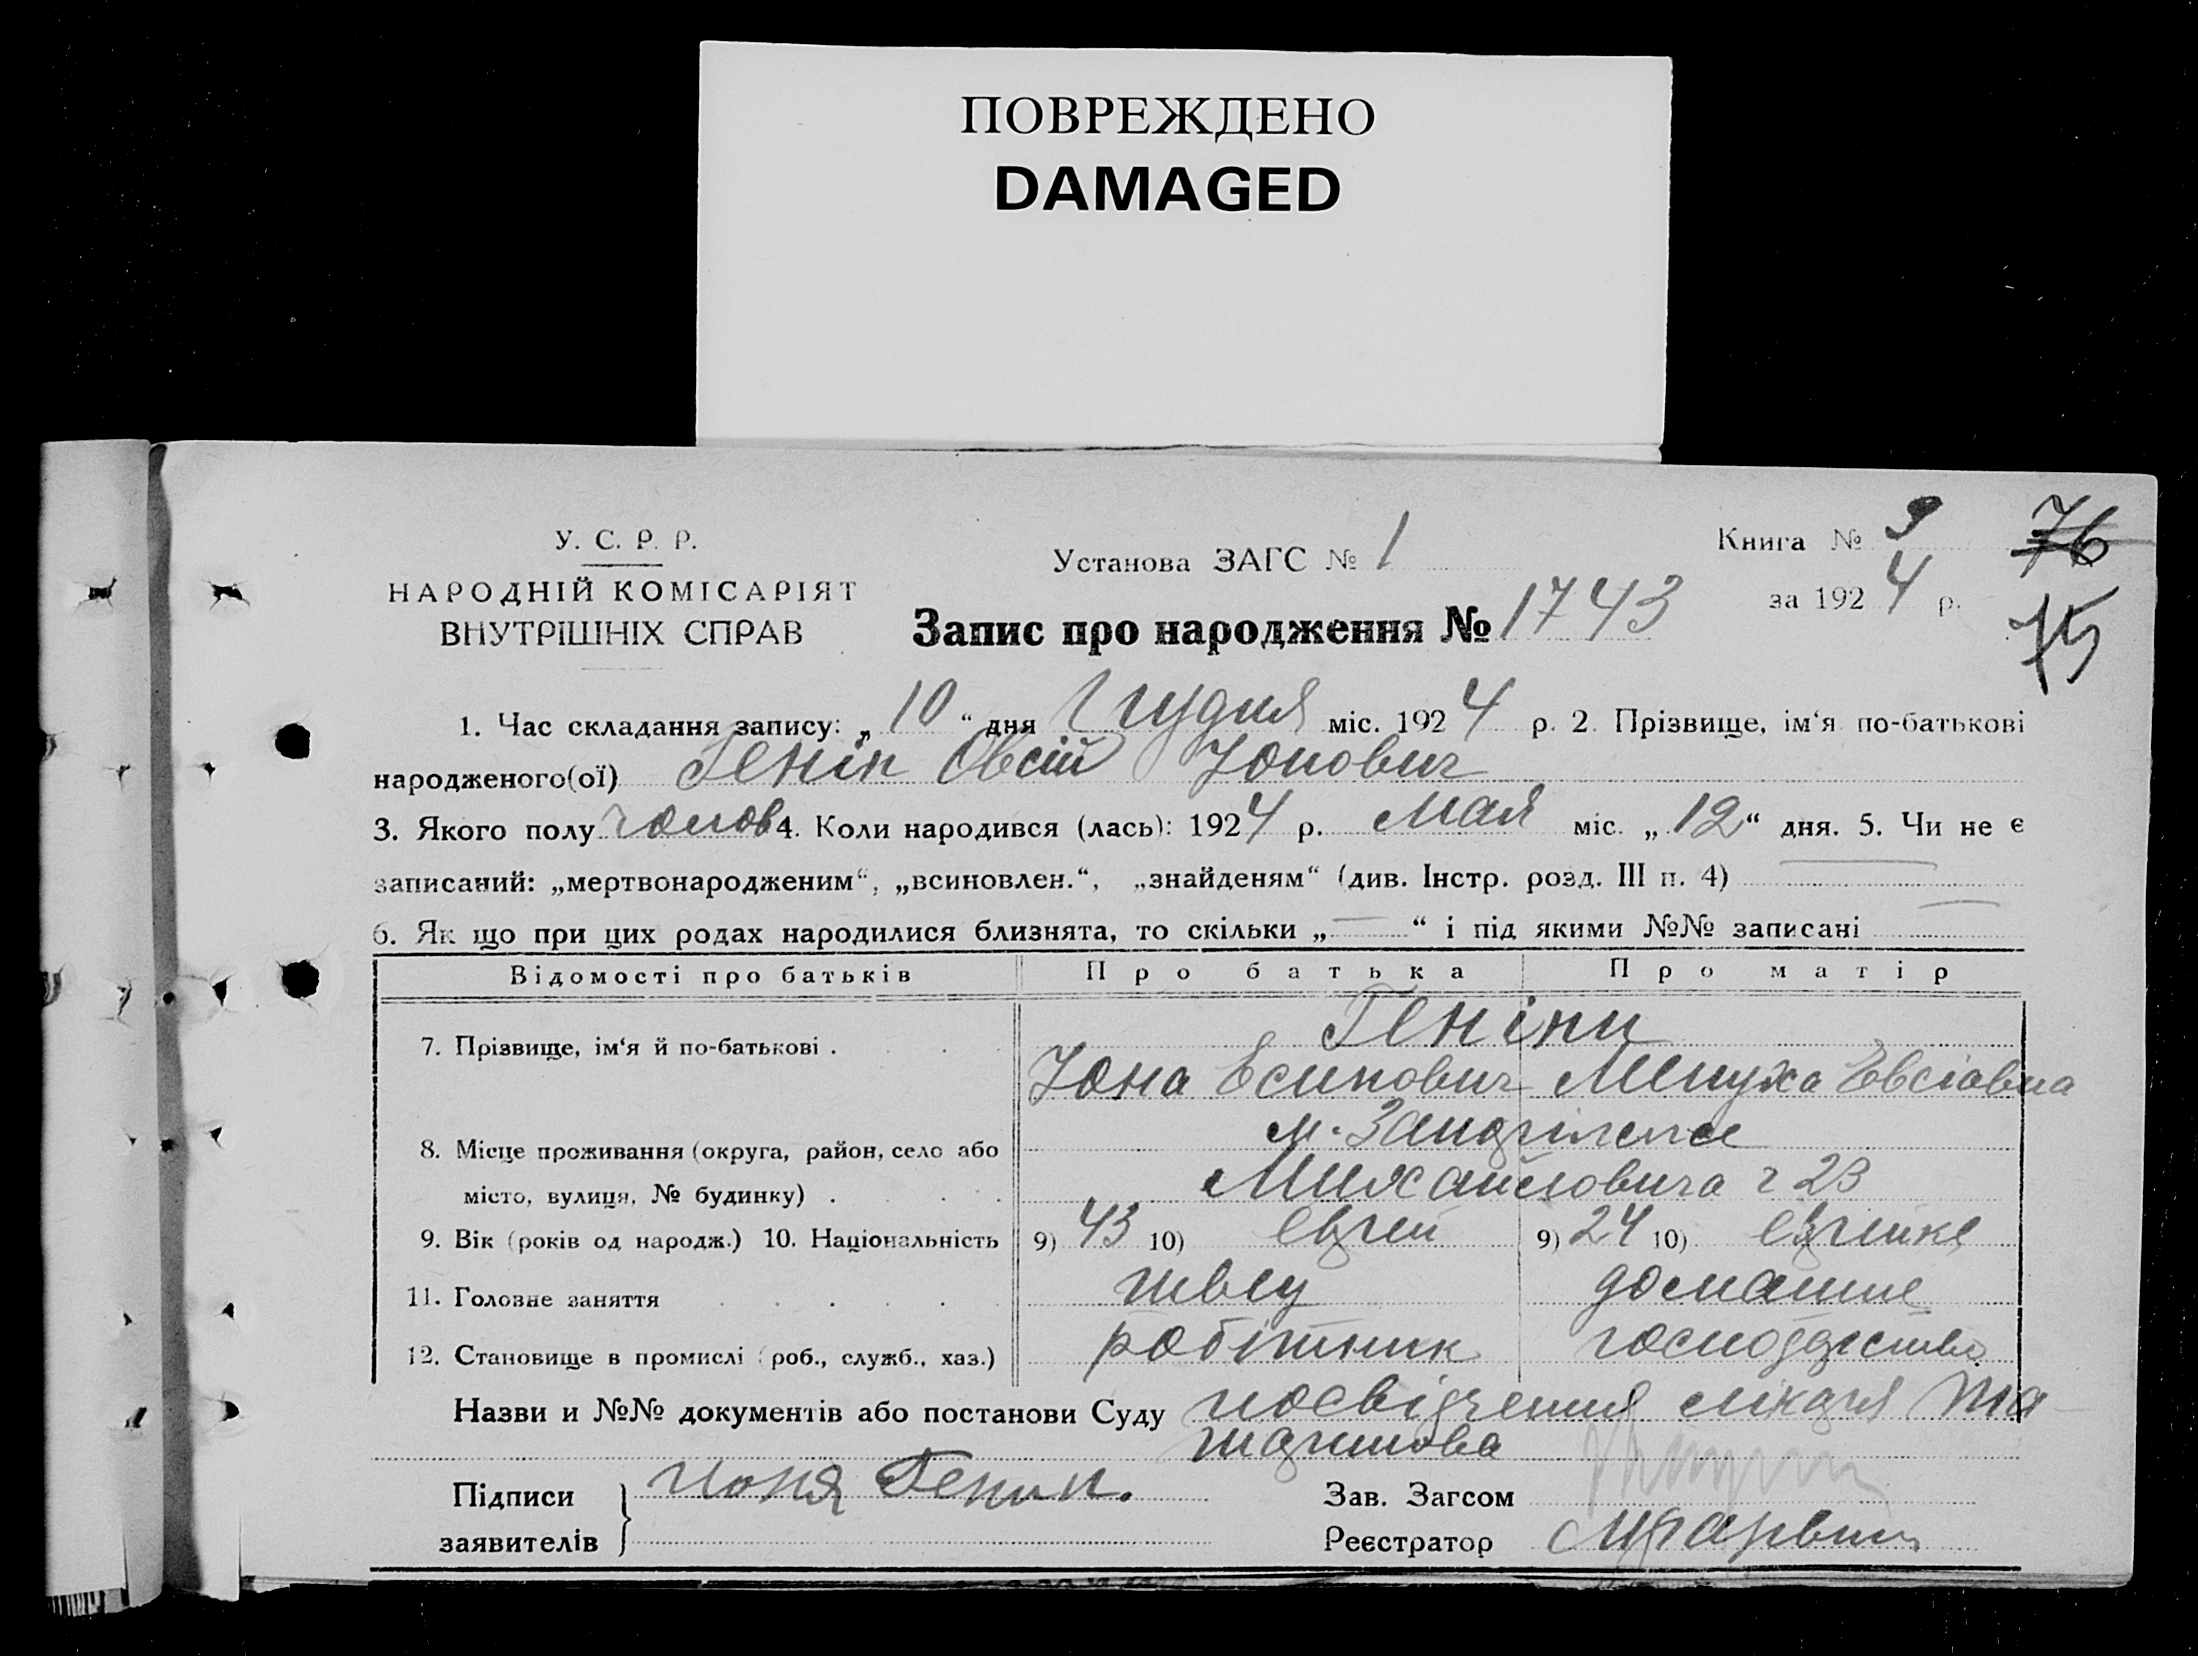 ПОВРЕЖДЕНО
DAMAGED
У. С. Р. Р.
НАРОДНІЙ КОМІСАРІЯТ
ВНУТРІШНІХ СПРАВ
Установа ЗАГС № 1
Книга № 9
за 1924 р.
76
75
Запис про народження № 1743
1. Час складання запису: „10“ дня Грудня міс. 1924 р. 2. Прізвище, ім‘я по-батькові
народженого(ої) Генін Овсій Іонович
3. Якого полу чолов 4. Коли народився (лась): 1924 р. Мая міс. „12“ дня. 5. Чи не є
записаний: „мертвонародженим“, „всиновлен.“, „знайденям“ (див. Інстр. розд. III п. 4) —
6. Як що при цих родах народилися близнята, то скільки „—“ і під якими №№ записані —
Відомості про батьків Про батька Про матір
7. Прізвище, ім‘я й по-батькові . Геніни
Іона Єсипович Менуха Евсіовна
8. Місце проживання (округа, район, село або
місто, вулиця, № будинку) . Михайловича 23
9. Вік (років од народж.) 10. Національність 9) 43 10) єврей 9) 24 10) єврейка
11. Головне заняття швец домашне
12. Становище в промислі (роб., служб., хаз.) робітник господарство
Назви и №№ документів або постанови Суду посвідчення лікаря
Підписи заявителів } Ионя Генин.
Зав. Загсом
Реєстратор